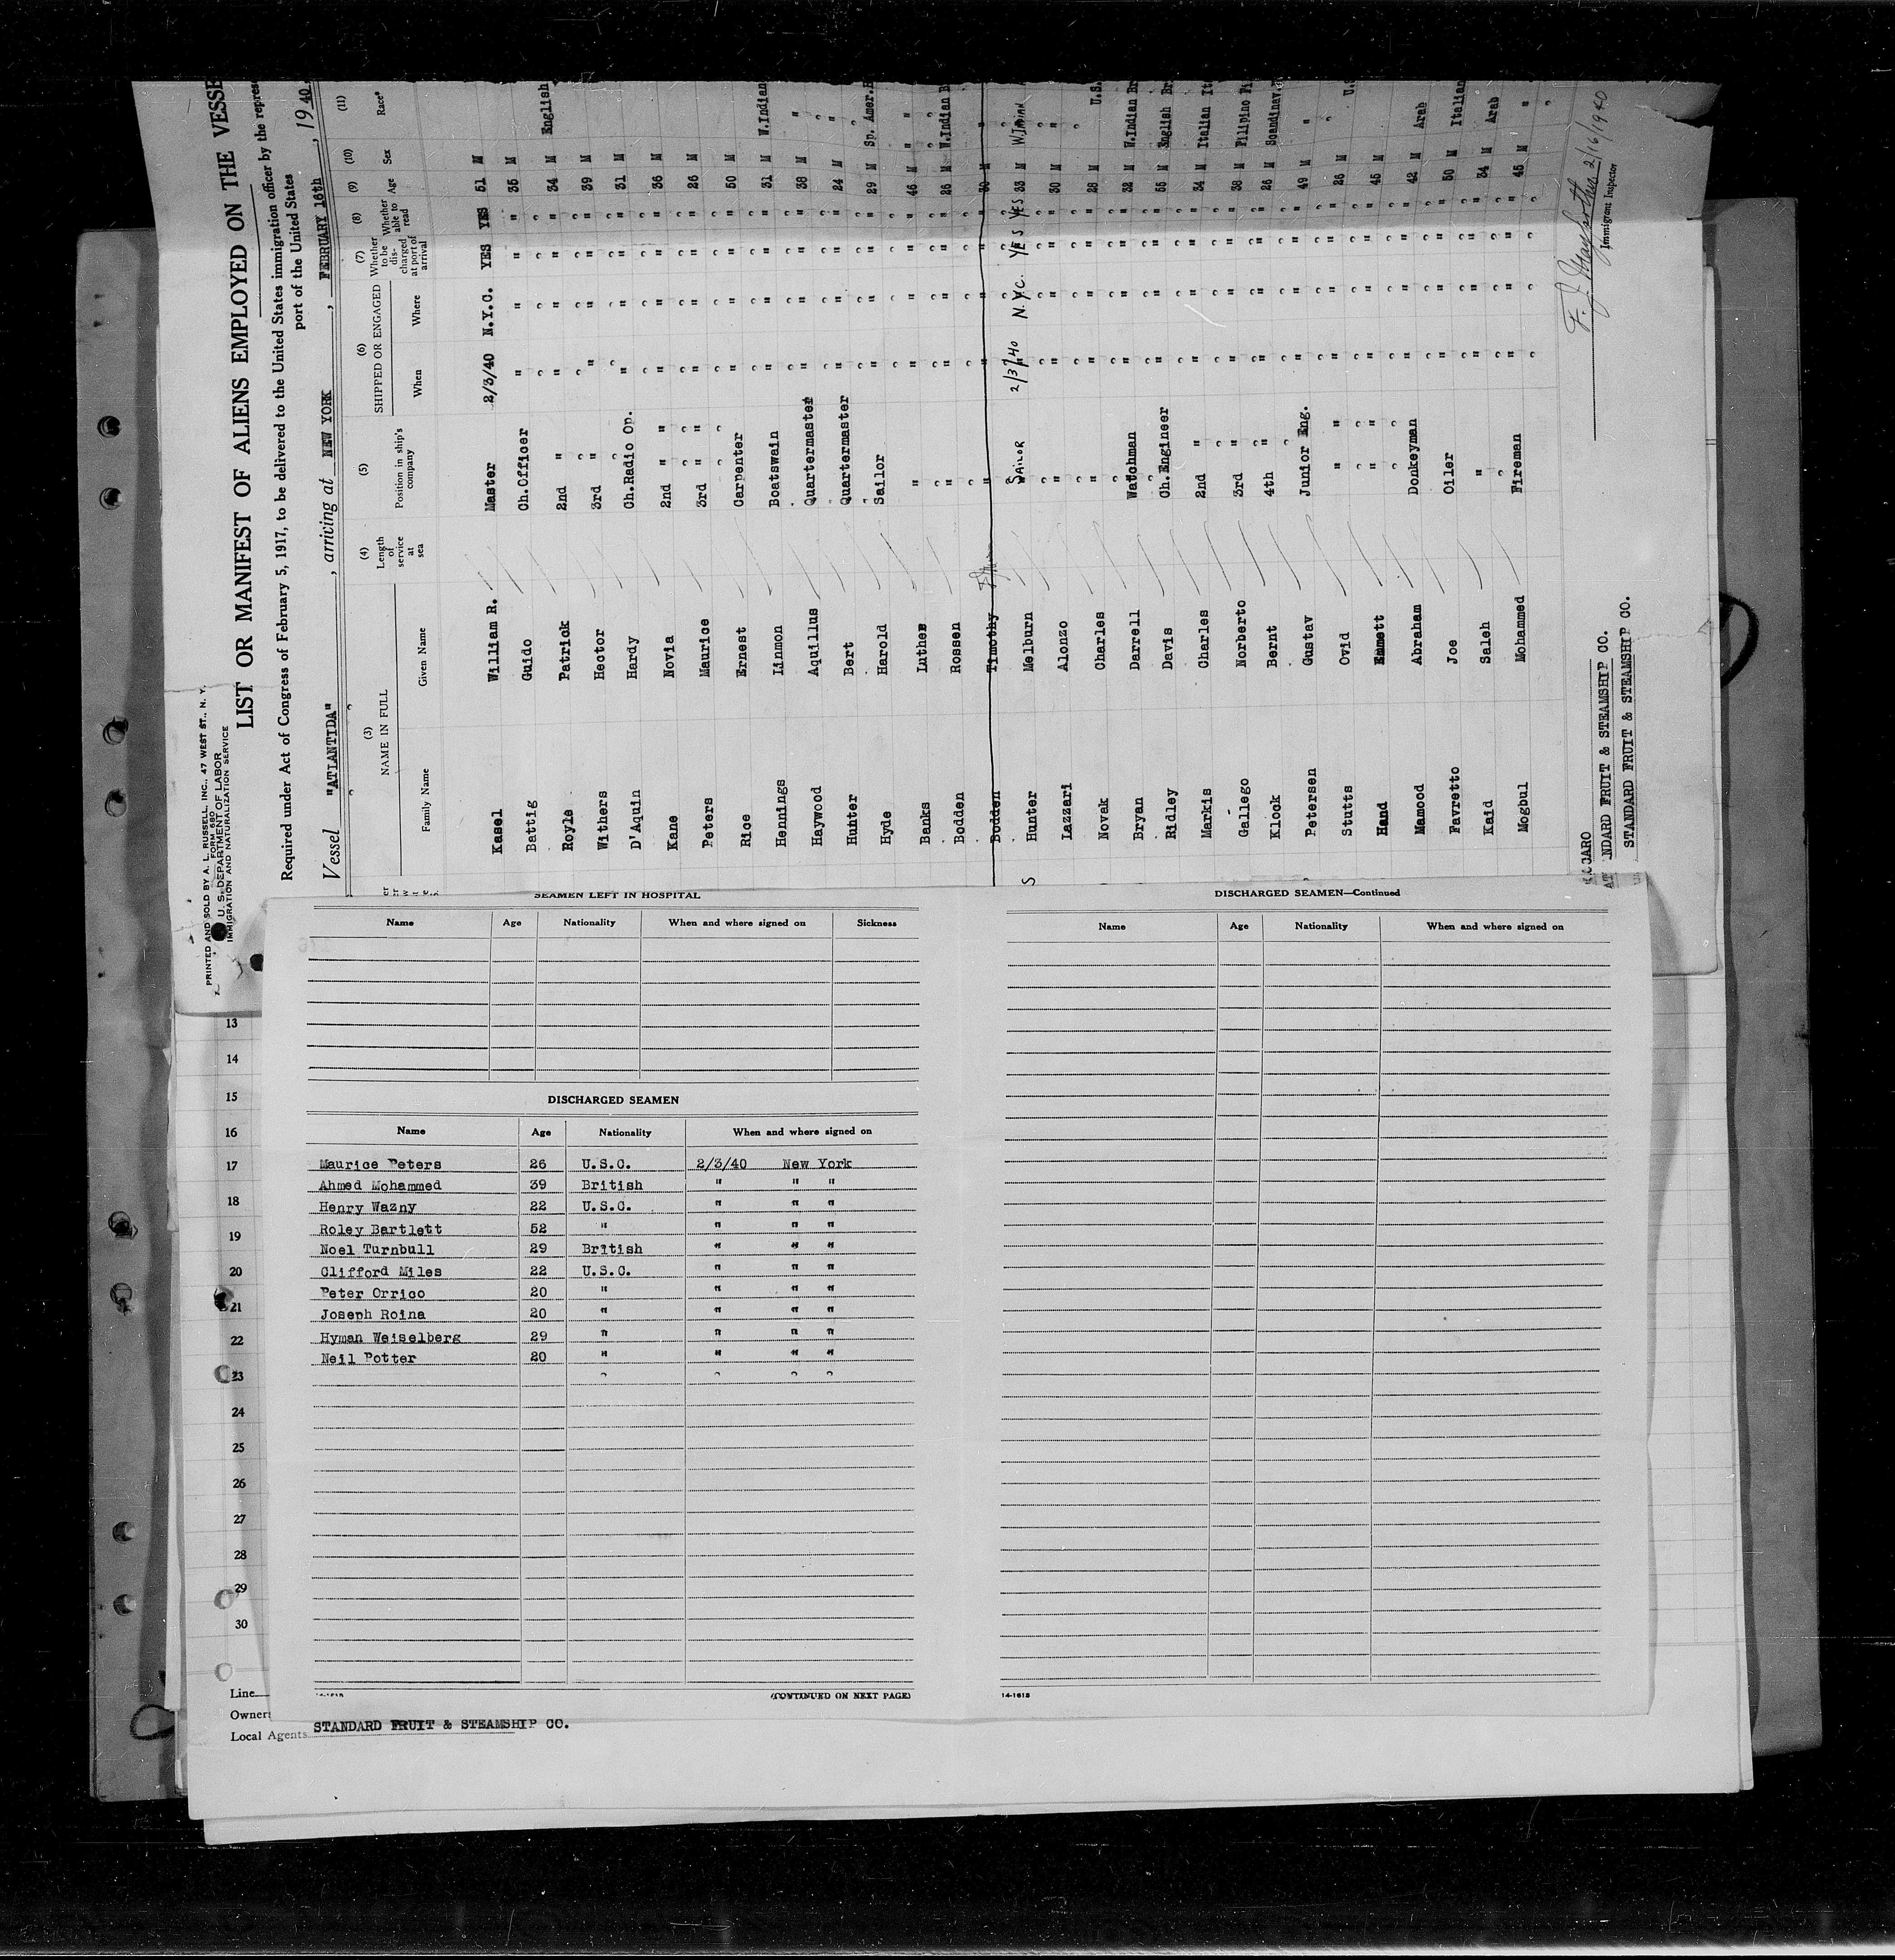 PRINTED AND SOLD BY A. L. RUSSELL, INC., 47 WEST ST., N. Y.
FORM 680
U. S. DEPARTMENT OF LABOR
IMMIGRATION AND NATURALIZATION SERVICE
LIST OR MANIFEST OF ALIENS EMPLOYED ON THE VESSE
Required under Act of Congress of February 5, 1917, to be delivered to the United States immigration officer by the repres
port of the United States
Vessel "ATLANTIDA", arriving at NEW YORK, FEBRUARY 16th, 1940
(3) (4) (5) (6) (7) (8) (9) (10) (11)
NAME IN FULL Length of service at sea Position in ship's company SHIPPED OR ENGAGED Whether to be discharged at port of arrival Whether able to read Age Sex Race*
Family Name Given Name When Where
Kasel William R. Master 2/3/40 N.Y.C. YES YES 51 M
Battig Guido Ch.Officer " " " " 35 M
Royle Patrick 2nd " " " " " 34 M English
Withers Hector 3rd " " " " " 39 M
D'Aquin Hardy Ch.Radio Op. " " " " 31 M
Kane Novia 2nd " " " " " " 36 M
Peters Maurice 3rd " " " " " " 26 M
Rice Ernest Carpenter " " " " 50 M
Hennings Linmon Boatswain " " " " 31 M W.Indian
Haywood Aquillus Quartermaster " " " " 38 M "
Hunter Bert Quartermaster " " " " 24 M "
Hyde Harold Sailor " " " " 29 M Sp. Amer.
Banks Luther " " " " " 46 M "
Bodden Rossen " " " " " 26 M W.Indian B
Bodden Timothy " " " " " 30 M "
Hunter Melburn SAILOR 2/3/40 N.Y.C. YES YES 33 M W.INDIAN
Lazzari Alonzo " " " " " 30 M "
Novak Charles " " " " " 28 M U.S.
Bryan Darrell Watchman " " " " 32 M W.Indian Br
Ridley Davis Ch.Engineer " " " " 55 M English Br.
Markis Charles 2nd " " " " " 34 M Italian It
Gallego Norberto 3rd " " " " " 38 M Filipino Pi
Klock Bernt 4th " " " " " 26 M Scandinav.
Petersen Gustav Junior Eng. " " " " 49 M "
Stutts Ovid " " " " " " 26 M U.S
Hand Emmett " " " " " " 45 M
Mamood Abraham Donkeyman " " " " 42 M Arab
Favretto Joe Oiler " " " " 50 M Italian
Kaid Saleh " " " " " 34 M Arab
Mogbul Mohammed Fireman " " " " 45 M "
2/16/1940
Immigrant Inspector
CCARO
NDARD FRUIT & STEAMSHIP CO.
STANDARD FRUIT & STEAMSHIP CO.
SEAMEN LEFT IN HOSPITAL
Name Age Nationality When and where signed on Sickness
DISCHARGED SEAMEN
Name Age Nationality When and where signed on
Maurice Peters 26 U.S.C. 2/3/40 New York
Ahmed Mohammed 39 British " " "
Henry Wazny 22 U.S.C. " " "
Roley Bartlett 52 " " " "
Noel Turnbull 29 British " " "
Clifford Miles 22 U.S.C. " " "
Peter Orrico 20 " " " "
Joseph Roina 20 " " " "
Hyman Weiselberg 29 " " " "
Neil Potter 20 " " " "
(CONTINUED ON NEXT PAGE)
DISCHARGED SEAMEN—Continued
Name Age Nationality When and where signed on
14-1615
13
14
15
16
17
18
19
20
21
22
23
24
25
26
27
28
29
30
Line
Owner
Local Agents STANDARD FRUIT & STEAMSHIP CO.